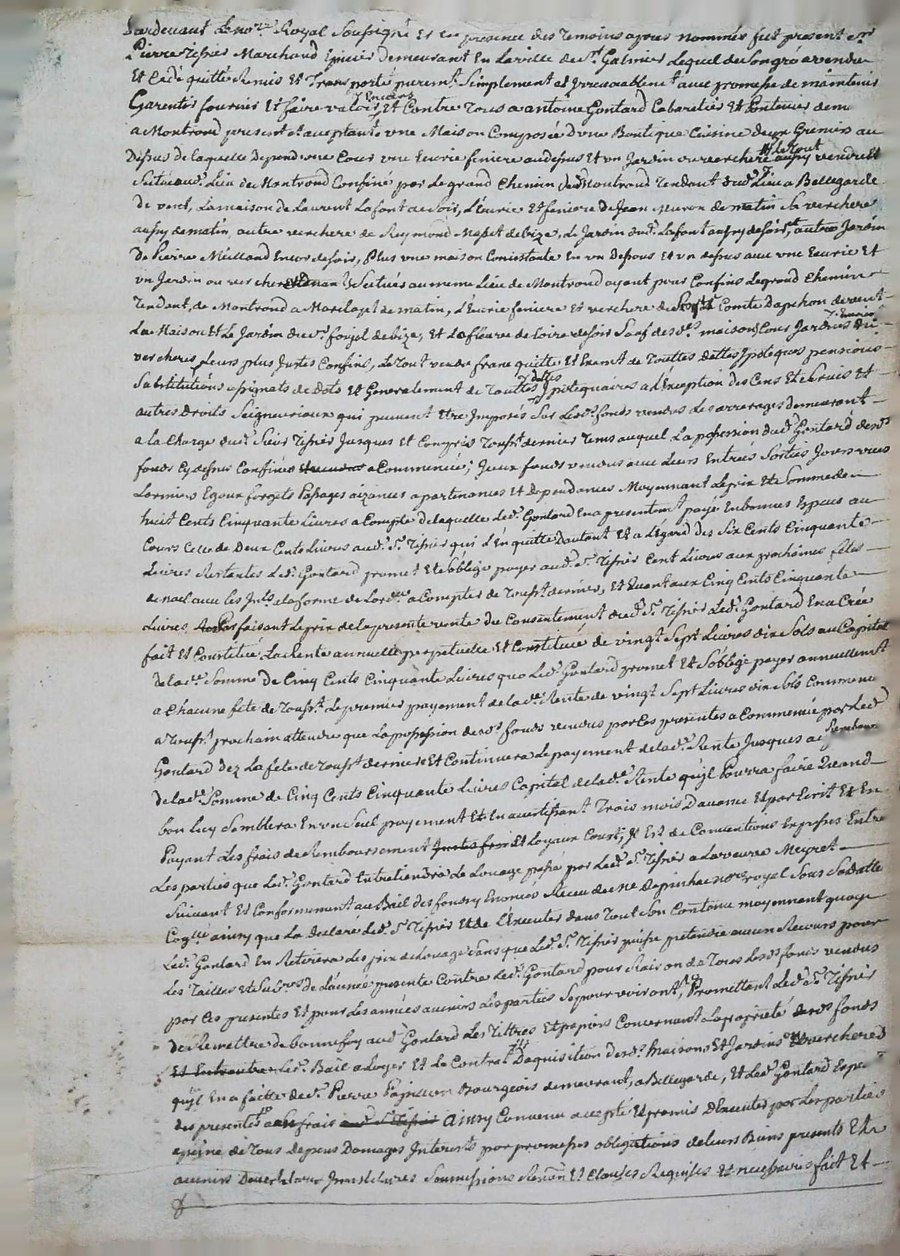 Pardevant le no.re Royal Soussigné Et en presence des Temoins apres nommés fut present s.r
Pierre Tissier Marchand Epicier demeurant En la ville de S.t Galmier Lequel de son gré a vendu
Et Cedé quitté Remis Et Transporté purem.t Simplement et Irrevocablem.t avec promesse de maintenir
Garentir fournir Et faire valoir Envers Et Contre Tous a antoine Gontard Cabaretier Et Pontenier dem.t
a Montrond present et acceptant, une Maison Composée d'une Boutique Cuisine deux Greniers au
Dessus de laquelle Depend une Cour une Ecurie feniere au dessus Et un Jardin ou verchere le tout aussy vendu Et
Situé au d. Lieu de Montrond Confiné par Le grand Chemin de Montrond Tendant du d. Lieu a Bellegarde
de vent, La maison de Laurent Lafont de soir, L'Ecurie Et feniere de Jean de matin Sa verchere
aussy de matin, autre verchere de Reymond de bize, Le Jardin du d. Lafont aussy de soir, autre Jardin
de Pierre Milland Encor de soir, Plus une maison Consistante En un Dessous Et un dessus avec une Ecurie Et
un Jardin ou verchere Situés au meme Lieu de Montrond ayant pour Confins Le grand Chemin
Tendant de Montrond a de matin, L'Ecurie feniere et verchere du Comte Dapchon de vent
La Maison Et Le Jardin du s.r de bize, Et Le fleuve de Loire de soir Sauf des d. maisons Cour Jardins Ecuries Ou
vercheres Leurs plus Justes Confins, Le Tout vendu franc quitte Et Exemt de Touttes dettes Ipoteques pensions
Substitutions assignats de Dots Et Generalement de Touttes dettes Ipotequaires a L'Exception des Cens Et Servis Et
autres Droits Seigneuriaux qui peuvent Etre Imposés Sur Les d. fonds vendus Les arrerages demeurant
a la Charge du d. Sieur Tissier Jusques Et Compris Touss.t dernier Tems auquel La possession du d. Gontard des d.
fonds Cy dessus Confinés a Commencée; Yceux fonds vendus avec Leurs Entrées Sorties Jours vues
Larmiers Egoux forgets Passages aizances apartenances Et dependances Moyennant Le prix Et Somme de
huit Cents Cinquante Livres a Compte de laquelle Le d. Gontard En a presentement payé En bonnes Especes au
Cours Celle de Deux Cents Livres au d. S. Tissier qui L'En quitte d'autant Et a L'égard des Six Cents Cinquante
Livres Restantes Le d. Gontard promet Et S'oblige payer au d. S. Tissier Cent Livres aux prochaines fêtes
de noel avec Les Int.ts a la forme de Lord.ce a Compter de Touss.t dernier, Et Quant aux Cinq Cents Cinquante
Livres faisant Le prix de la presente vente du Consentement du d. S. Tissier Le d. Gontard En a Crée
fait Et Constitué La Rente annuelle perpetuelle Et Constituée de vingt Sept Livres dix Sols au Capital
de la d. Somme de Cinq Cents Cinquante Livres que Le d. Gontard promet Et S'oblige payer annuellement
a Chacune fête de Touss.t Le premier payement de la d. Rente de vingt Sept Livres dix Sols Commence
a Touss.t prochain attendu que La possession des d. fonds vendus par Ces presentes a Commencé par Le d.
Gontard dez La fete de Touss.t derniere Et Continuera Le payement de la d. Rente Jusques au Rembours.t
de la d. Somme de Cinq Cents Cinquante Livres Capital de la d. Rente qu'il Pourra faire Quand
bon Luy Semblera En un Seul payement Et En avertissant Trois mois D'avance Et par Ecrit Et En
Payant Les frais de Remboursement Justes frais Et Loyaux Cousts; Est de Conventions Expresses Entre
Les parties que Le d. Gontard Entretiendra Le Louage passé par Le d. S. Tissier a La veuve Meyret
Suivant Et Conformement au Bail des fonds y Enoncés Receu de M.e Depinhac no.re royal Sous Sa datte
ainsy que La declaré Le d. S. Tissier Et de L'Executer dans Tout Son Contenu moyennant quoy
Le d. Gontard En Retirera Le prix de Louage Sans que Le d. S. Tissier puisse pretendre aucun Recours pour
Les Tailles Et de L'année presente Contre Le d. Gontard pour Raison de Tous Les d. fonds vendus
par Ces presentes Et pour Les années avenir Les parties Se pourvoiront, Promettant Le d. S. Tissier
de Remettre de bonne foy au d. Gontard Les Tittres Et papiers Concernant La propriété des d. fonds
Le d. Bail a Loyer Et Le Contrat D'aquisition des d. Maisons Et Jardins Et vercheres
qu'il En a faitte de s. Pierre Bourgeois demeurant a Bellegarde, Et Le d. Gontard
des presentes a frais ainsy Convenu accepté Et promis D'Executer par Les parties
a peine de Tous depens Domages Interets par promesses obligations de Leurs Biens presents Et
avenir Soumissions Renon.on Et Clauses Requises Et necessaires fait Et